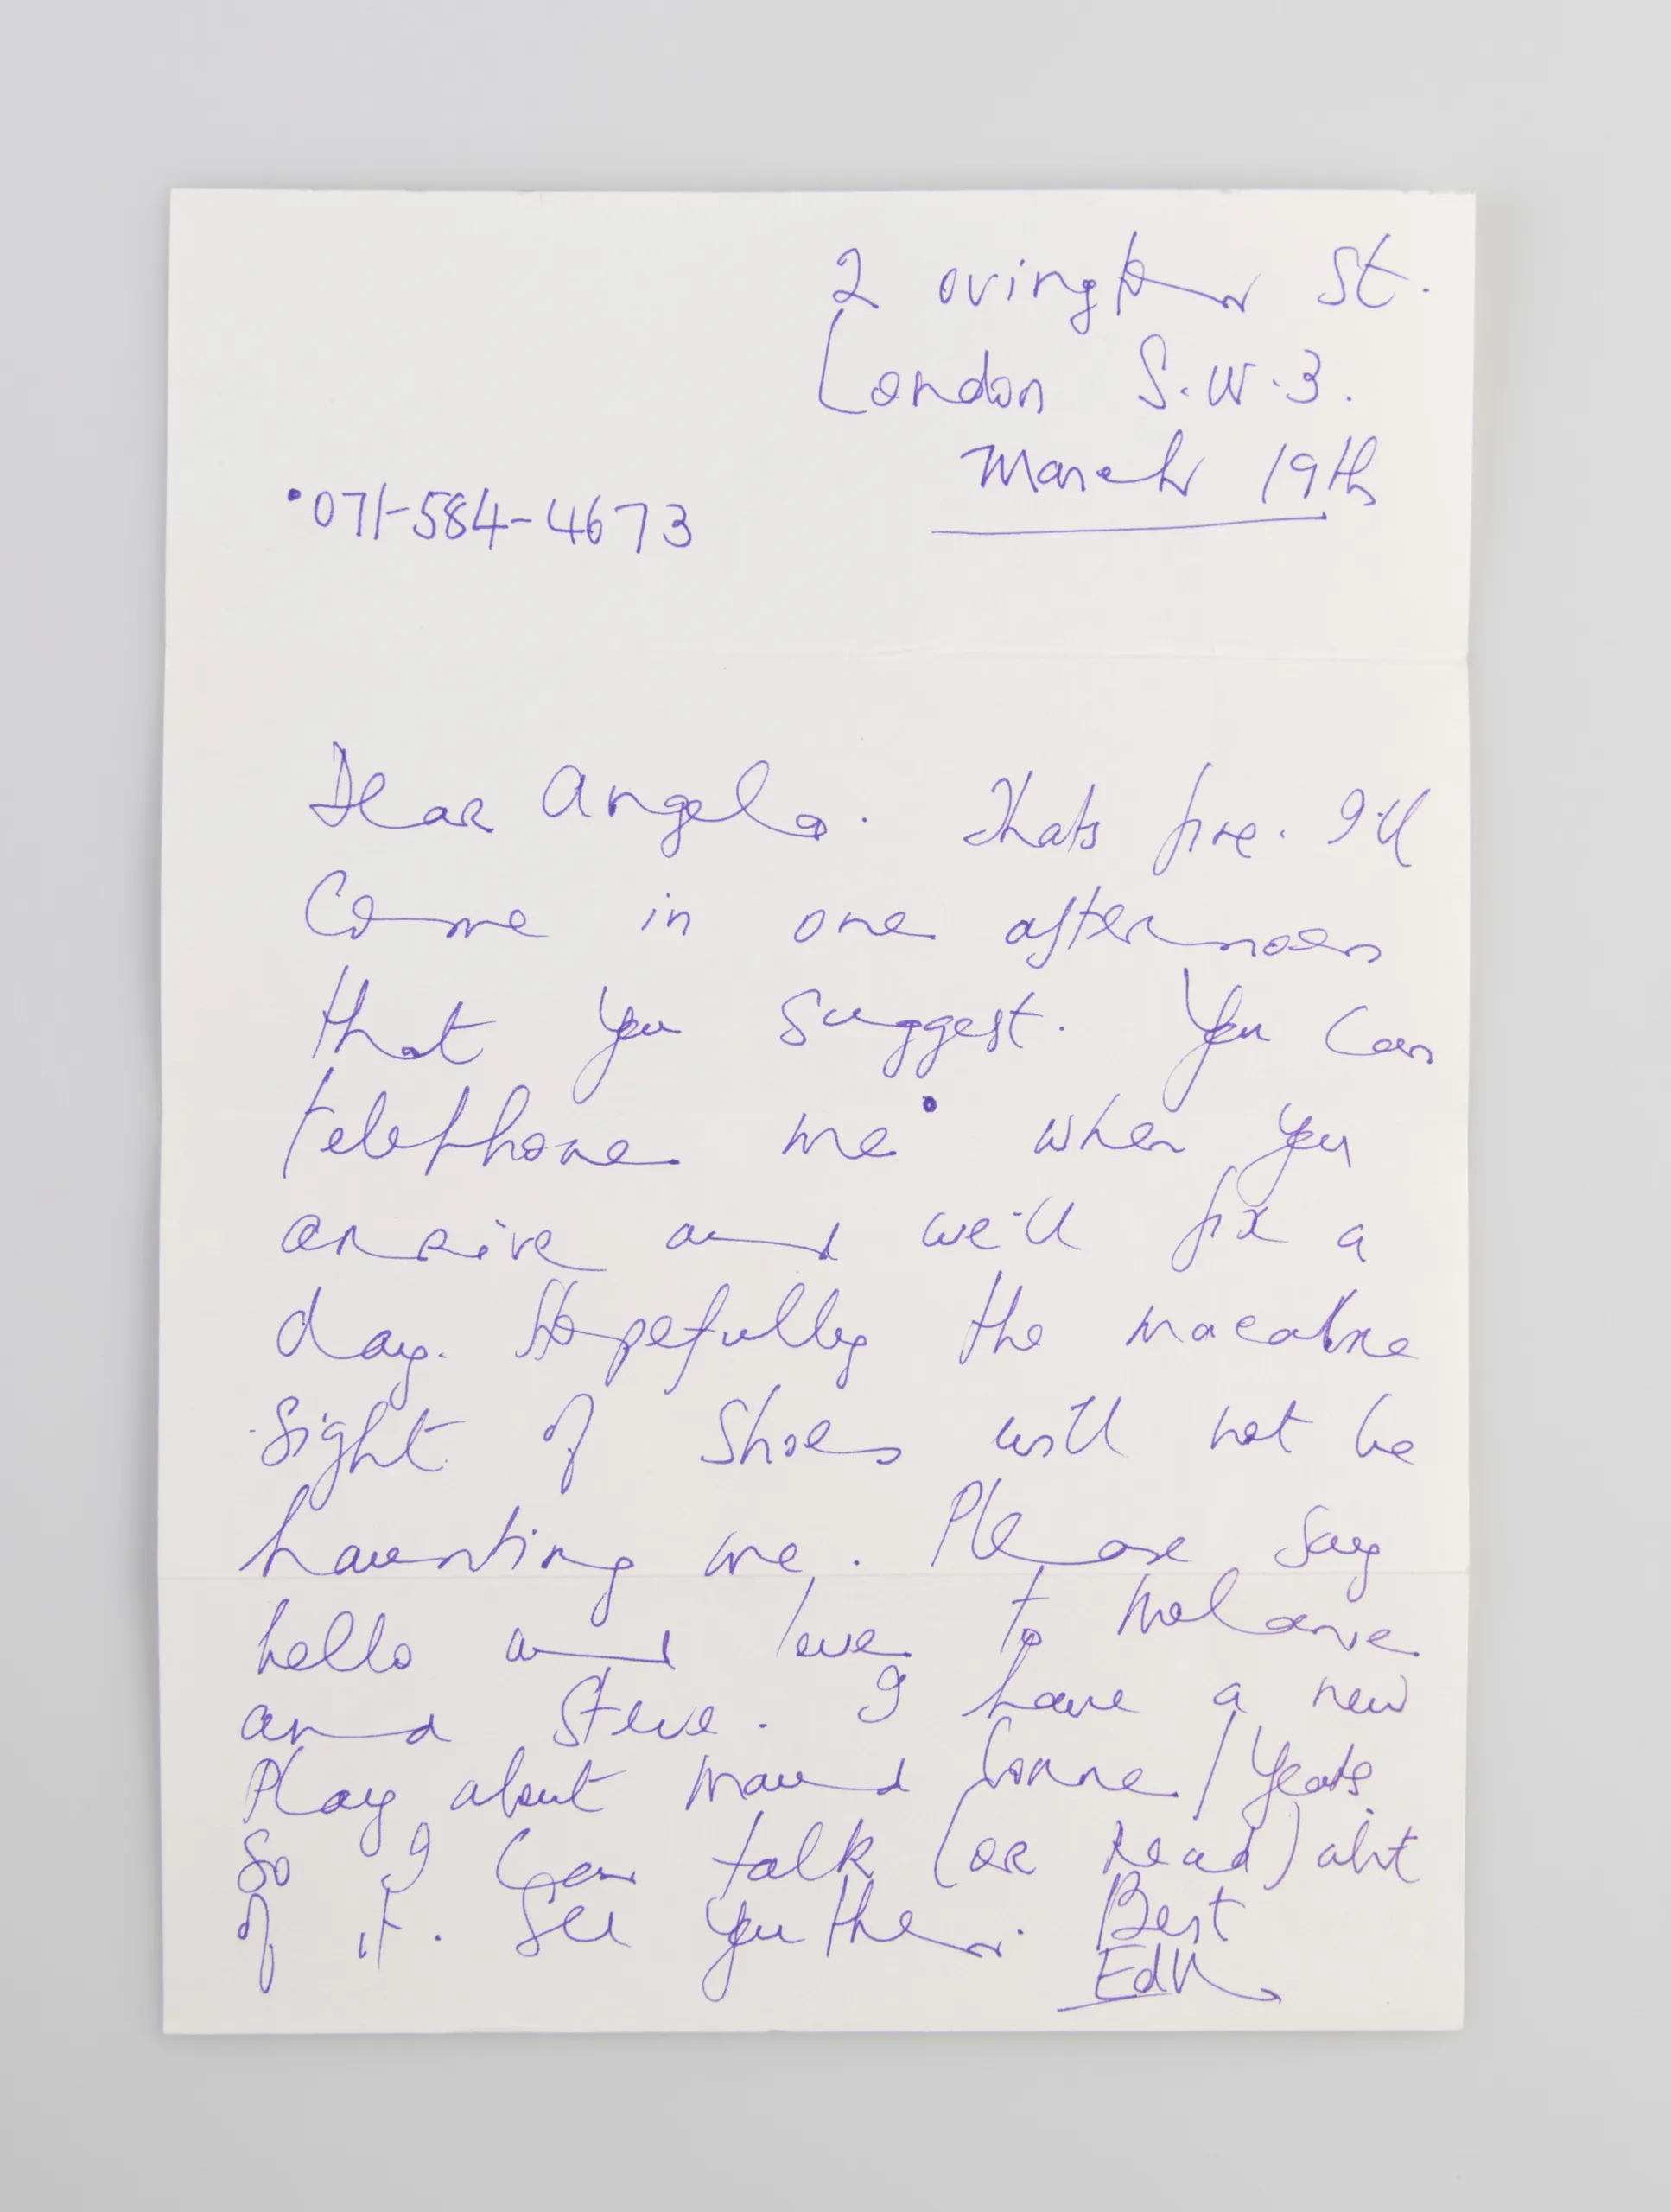 2 ovington St.
London S.W.3.
March 19th
•071-584-4673
Dear Angela. Thats fine. I'll
Come in one afternoon
that you suggest. You can
telephone me• when you
arrive and we'll fix a
day. Hopefully the macabre
sight of Shoes will not be
haunting me. Please say
hello and love to Melanie
and Steve. I have a new
Play about Maud Gonne/Yeats
So I can talk (or read) abt
of it. See you then. Best
Edna